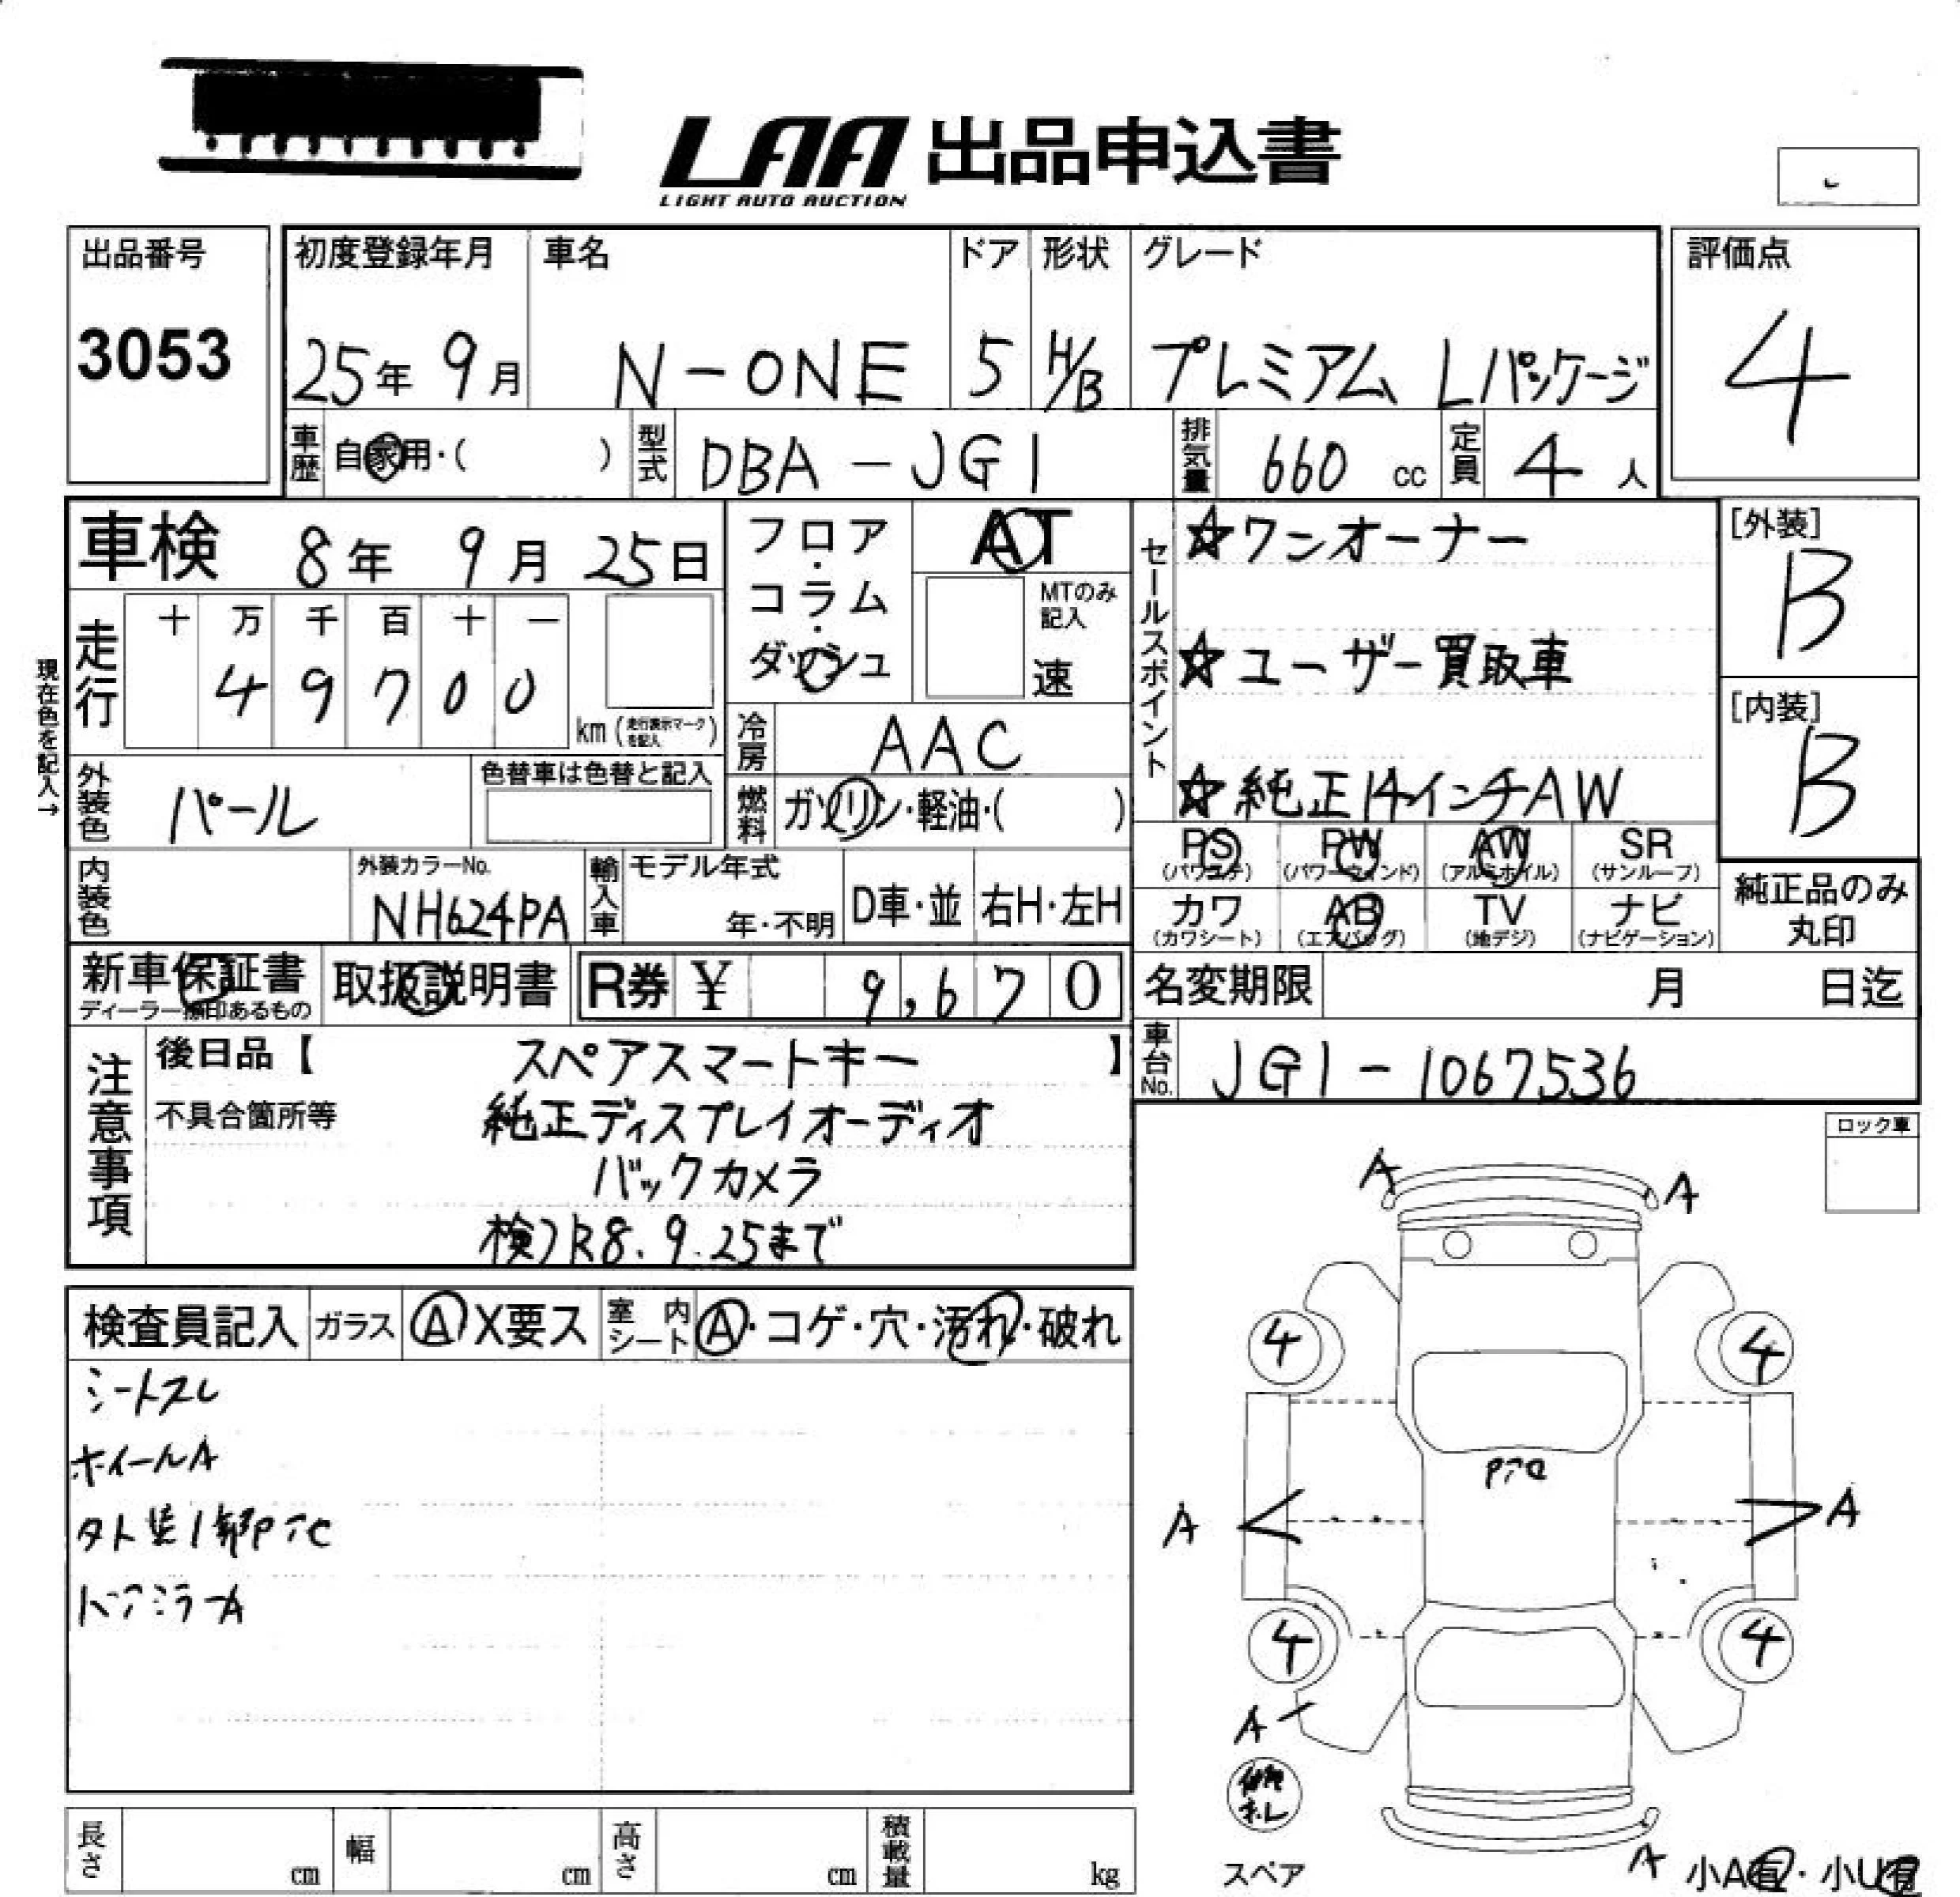 LAA 出品申込書
LIGHT AUTO AUCTION
出品番号
3053
初度登録年月
25年 9月
車名
N-ONE
ドア
5
形状
H/B
グレード
プレミアム Lパッケージ
評価点
4
車歴
自家用・( )
型式
DBA-JG1
排気量
660 cc
定員
4 人
車検 8年 9月 25日
フロア・コラム・ダッシュ
AT
MTのみ記入
速
セールスポイント
☆ワンオーナー
☆ユーザー買取車
☆純正14インチAW
[外装]
B
[内装]
B
現在色を記入→
走行
十 万 千 百 十 一
4 9 7 0 0
km (走行表示マークを記入)
冷房
AAC
外装色
パール
色替車は色替と記入
燃料
ガソリン・軽油・( )
PS
(パワステ)
PW
(パワーウィンド)
AW
(アルミホイル)
SR
(サンルーフ)
カワ
(カワシート)
AB
(エアバッグ)
TV
(地デジ)
ナビ
(ナビゲーション)
純正品のみ丸印
内装色
外装カラーNo.
NH624PA
輸入車
モデル年式
年・不明
D車・並
右H・左H
新車保証書
ディーラー捺印あるもの
取扱説明書
R券 ¥ 9,670
名変期限 月 日迄
車台No.
JG1-1067536
注意事項
後日品【 スペアスマートキー 】
不具合箇所等
純正ディスプレイオーディオ
バックカメラ
検)R8.9.25まで
ロック車
検査員記入
ガラス
A X要ス
室内シート
A・コゲ・穴・汚れ・破れ
シートスレ
ホイールA
外装1部P
ドアミラーA
A
A
4
4
A
A
4
4
A
修理キレ
スペア
A
小A有・小U有
長さ cm
幅 cm
高さ cm
積載量 kg